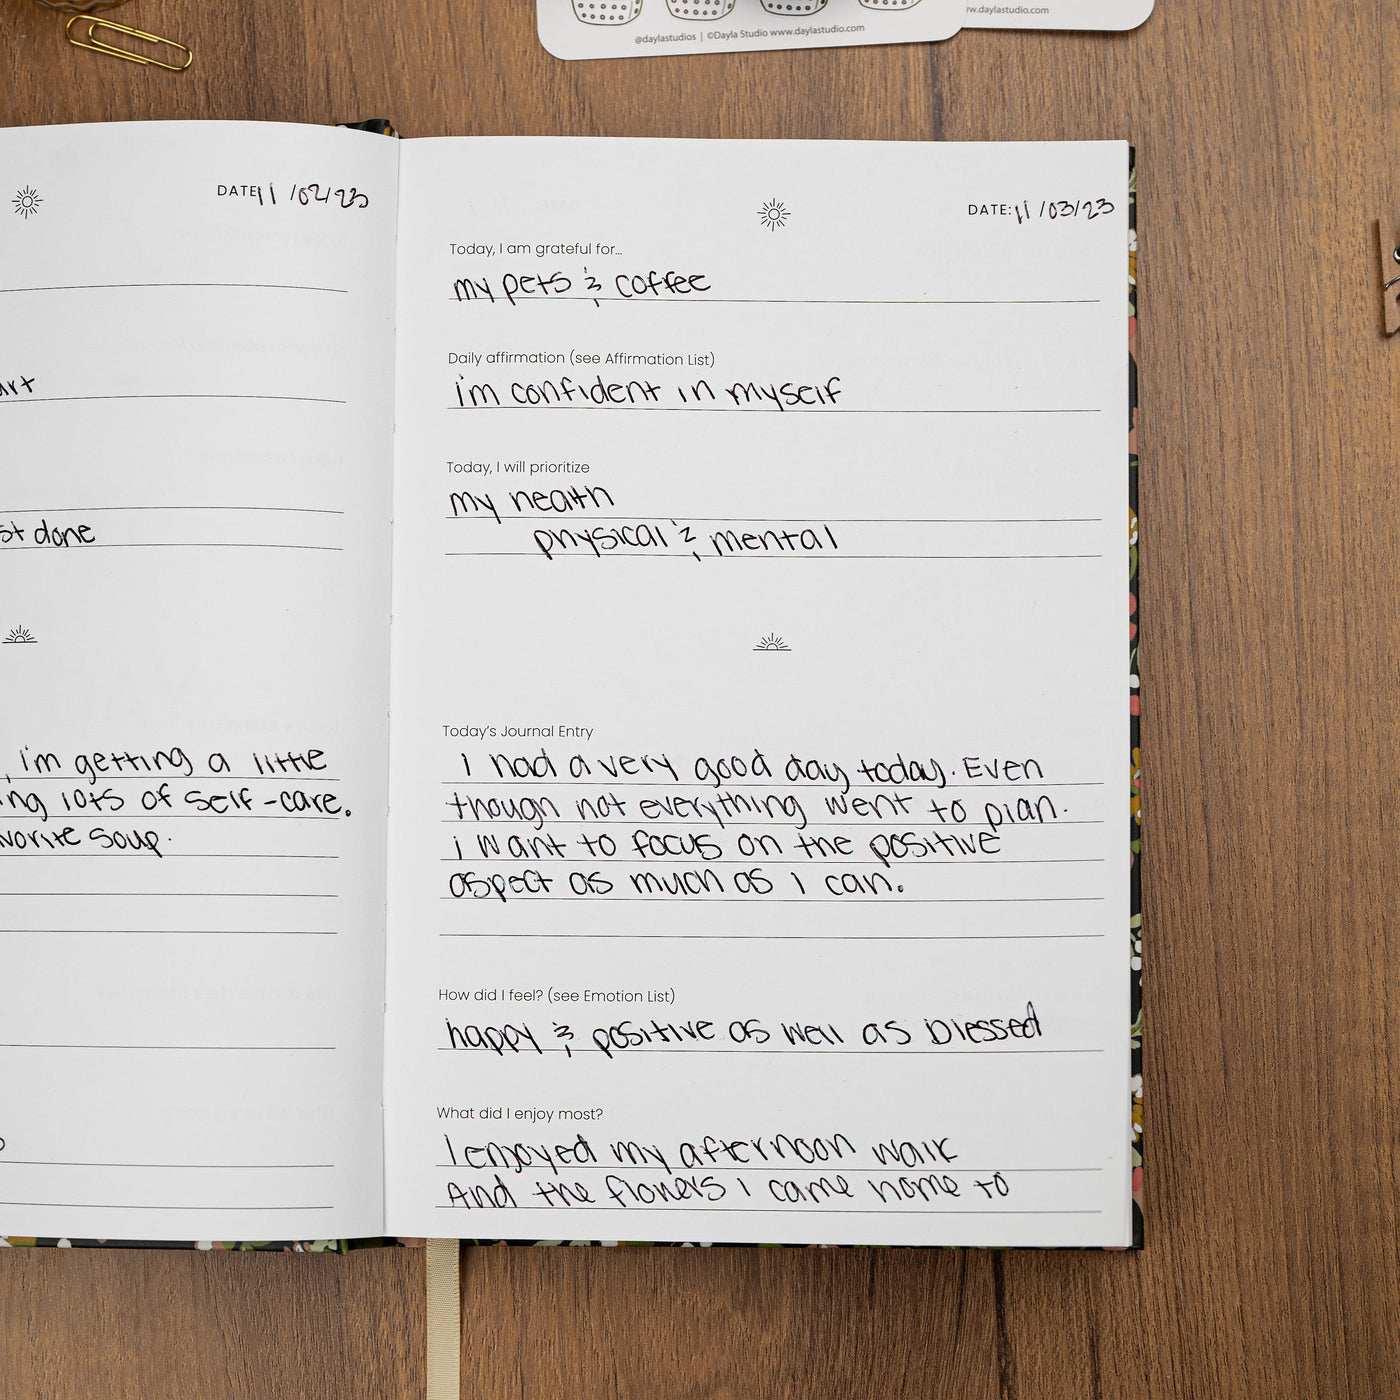 @daylastudios | ©Dayla Studio www.daylastudio.com
ww.daylastudio.com
DATE 11/02/23
art
st done
, i'm getting a little
ing lots of self-care.
vorite soup.
DATE: 11/03/23
Today, I am grateful for...
my pets & coffee
Daily affirmation (see Affirmation List)
i'm confident in myself
Today, I will prioritize
my health
physical & mental
Today's Journal Entry
I had a very good day today. Even
though not everything went to plan.
i want to focus on the positive
aspect as much as I can.
How did I feel? (see Emotion List)
happy & positive as well as blessed
What did I enjoy most?
I enjoyed my afternoon walk
And the flowers I came home to